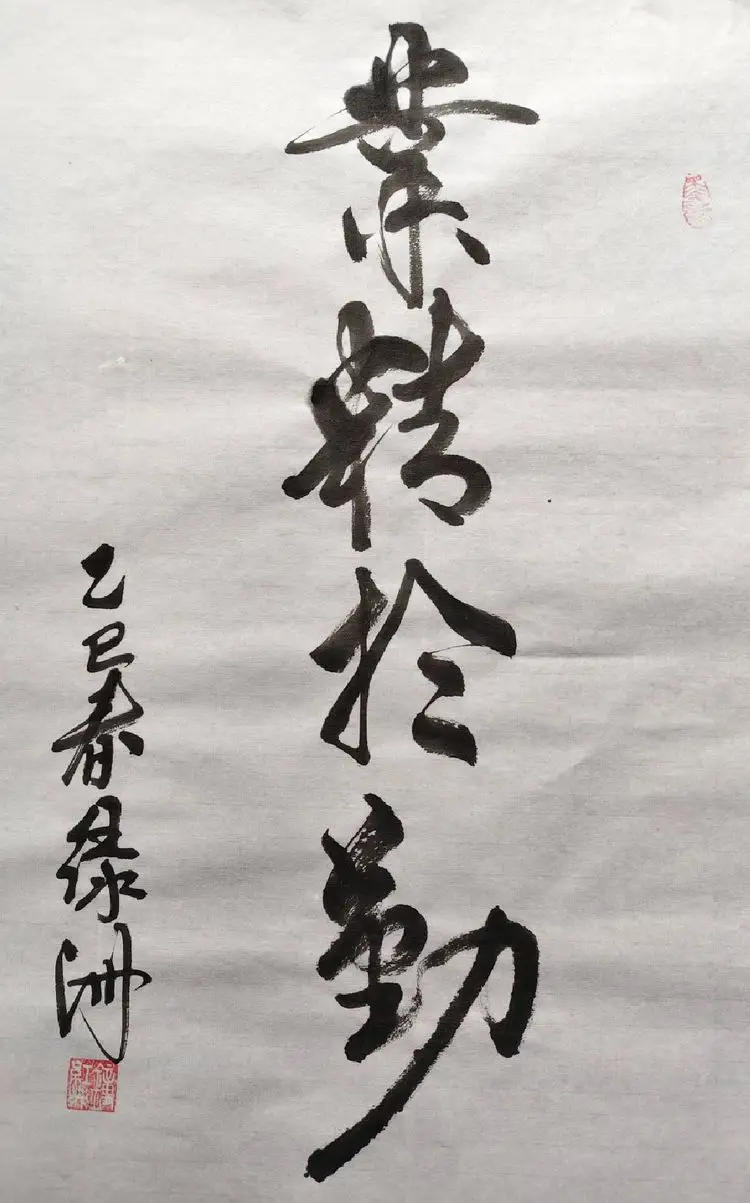 業精於勤
乙巳春绿洲